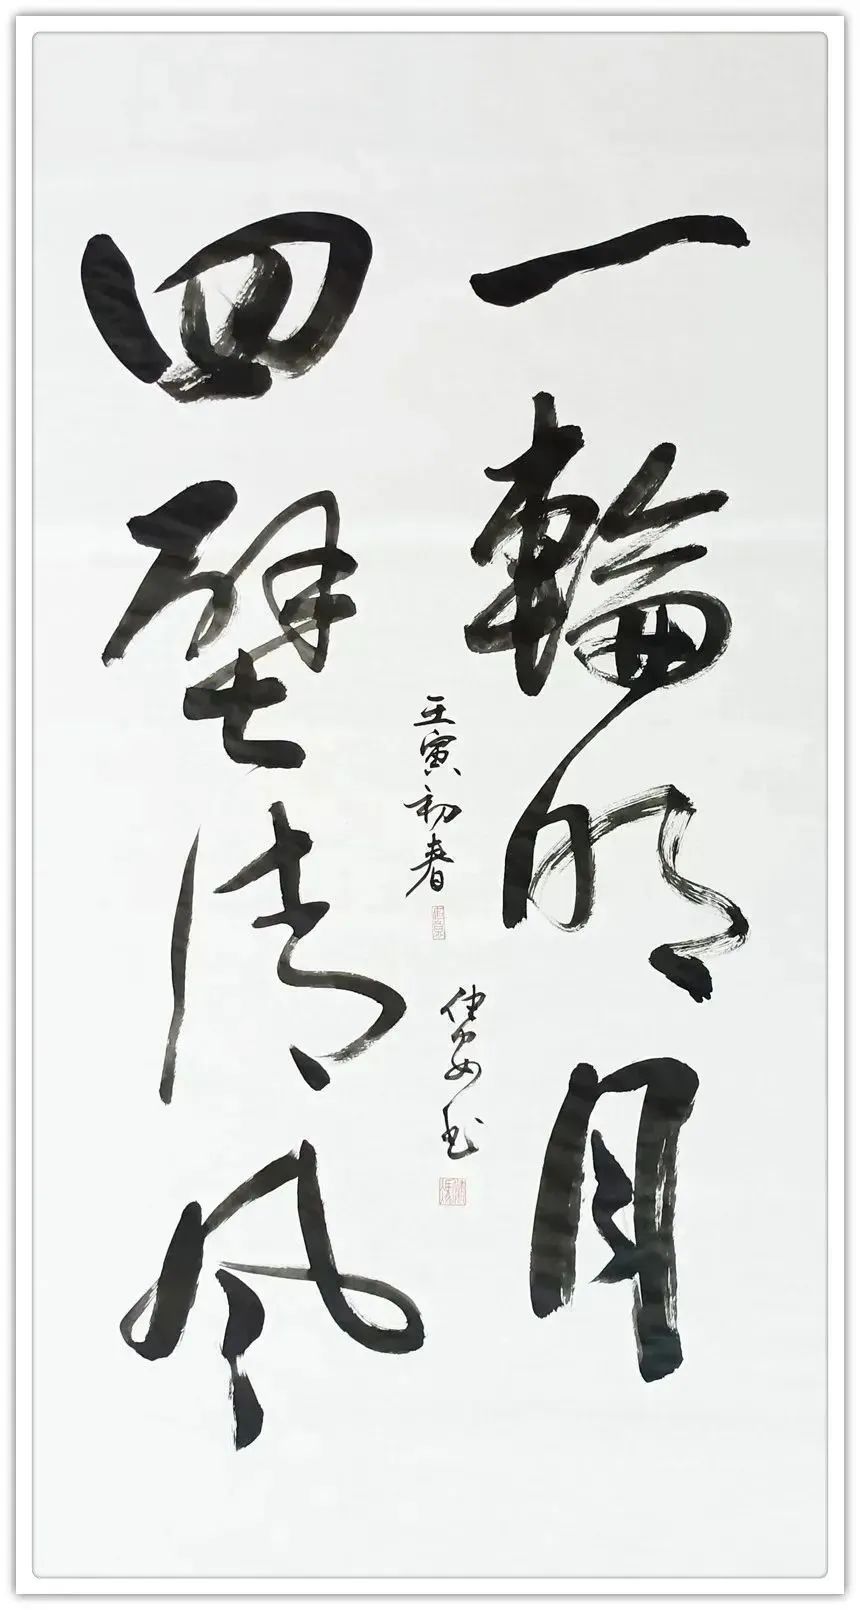 一輪明月
四壁清风
壬寅初春